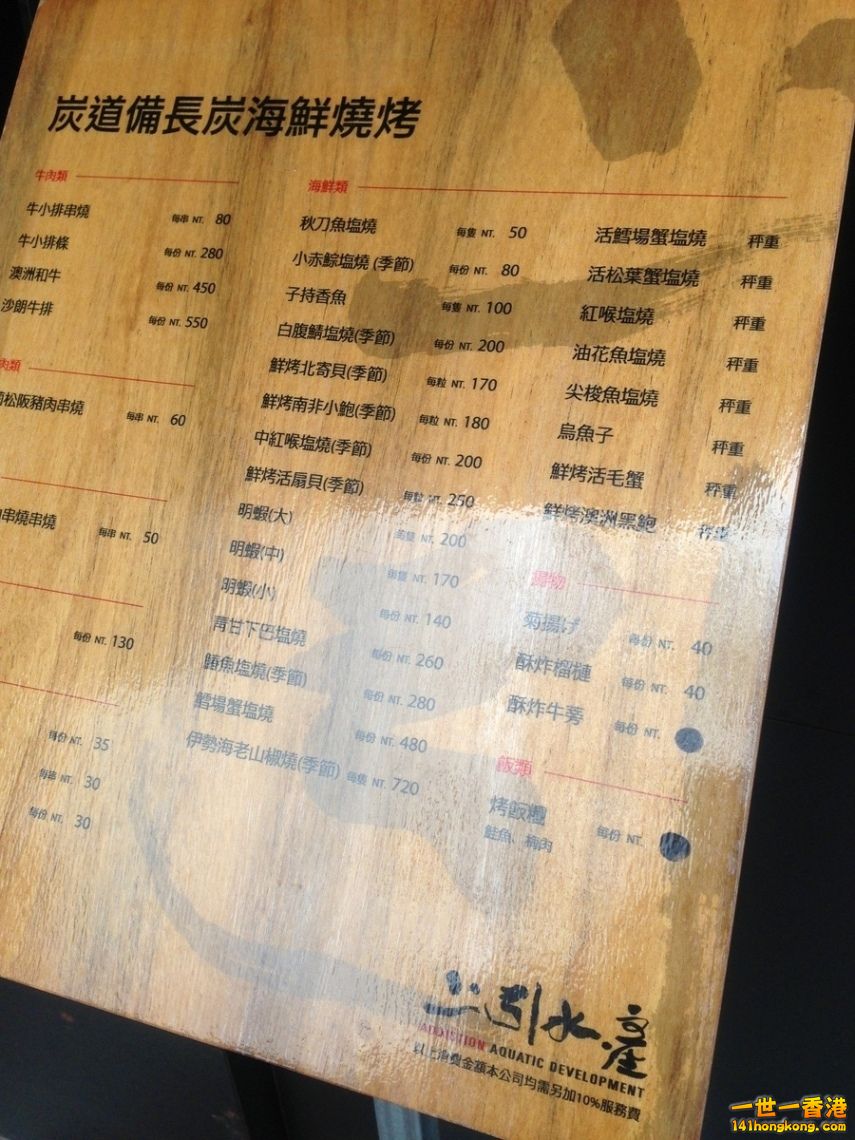 炭道備長炭海鮮燒烤
牛肉類
牛小排串燒 每串 NT. 80
牛小排條 每份 NT. 280
澳洲和牛 每份 NT. 450
沙朗牛排 每份 NT. 550
肉類
松阪豬肉串燒 每串 NT. 60
串燒串燒 每串 NT. 50
每份 NT. 130
每份 NT. 35
每串 NT. 30
每份 NT. 30
海鮮類
秋刀魚塩燒 每隻 NT. 50
小赤鯮塩燒 (季節) 每份 NT. 80
子持香魚 每隻 NT. 100
白腹鯖塩燒(季節) 每份 NT. 200
鮮烤北寄貝(季節) 每粒 NT. 170
鮮烤南非小鮑(季節) 每粒 NT. 180
中紅喉塩燒(季節) 每份 NT. 200
鮮烤活扇貝(季節) 每粒 NT. 250
明蝦(大) 每隻 NT. 200
明蝦(中) 每隻 NT. 170
明蝦(小) 每份 NT. 140
青甘下巴塩燒 每份 NT. 260
鯧魚塩燒(季節) 每份 NT. 280
鱈場蟹塩燒 每份 NT. 480
伊勢海老山椒燒(季節) 每隻 NT. 720
活鱈場蟹塩燒 秤重
活松葉蟹塩燒 秤重
紅喉塩燒 秤重
油花魚塩燒 秤重
尖梭魚塩燒 秤重
烏魚子 秤重
鮮烤活毛蟹 秤重
鮮烤澳洲黑鮑 秤重
揚物
菊揚げ 每份 NT. 40
酥炸榴槤 每份 NT. 40
酥炸牛蒡 每份 NT.
飯類
烤飯糰 每份 NT.
鮭魚、梅肉
上引水產
ADDICTION AQUATIC DEVELOPMENT
以上消費金額本公司均需另加10%服務費
一世一香港
141hongkong.com